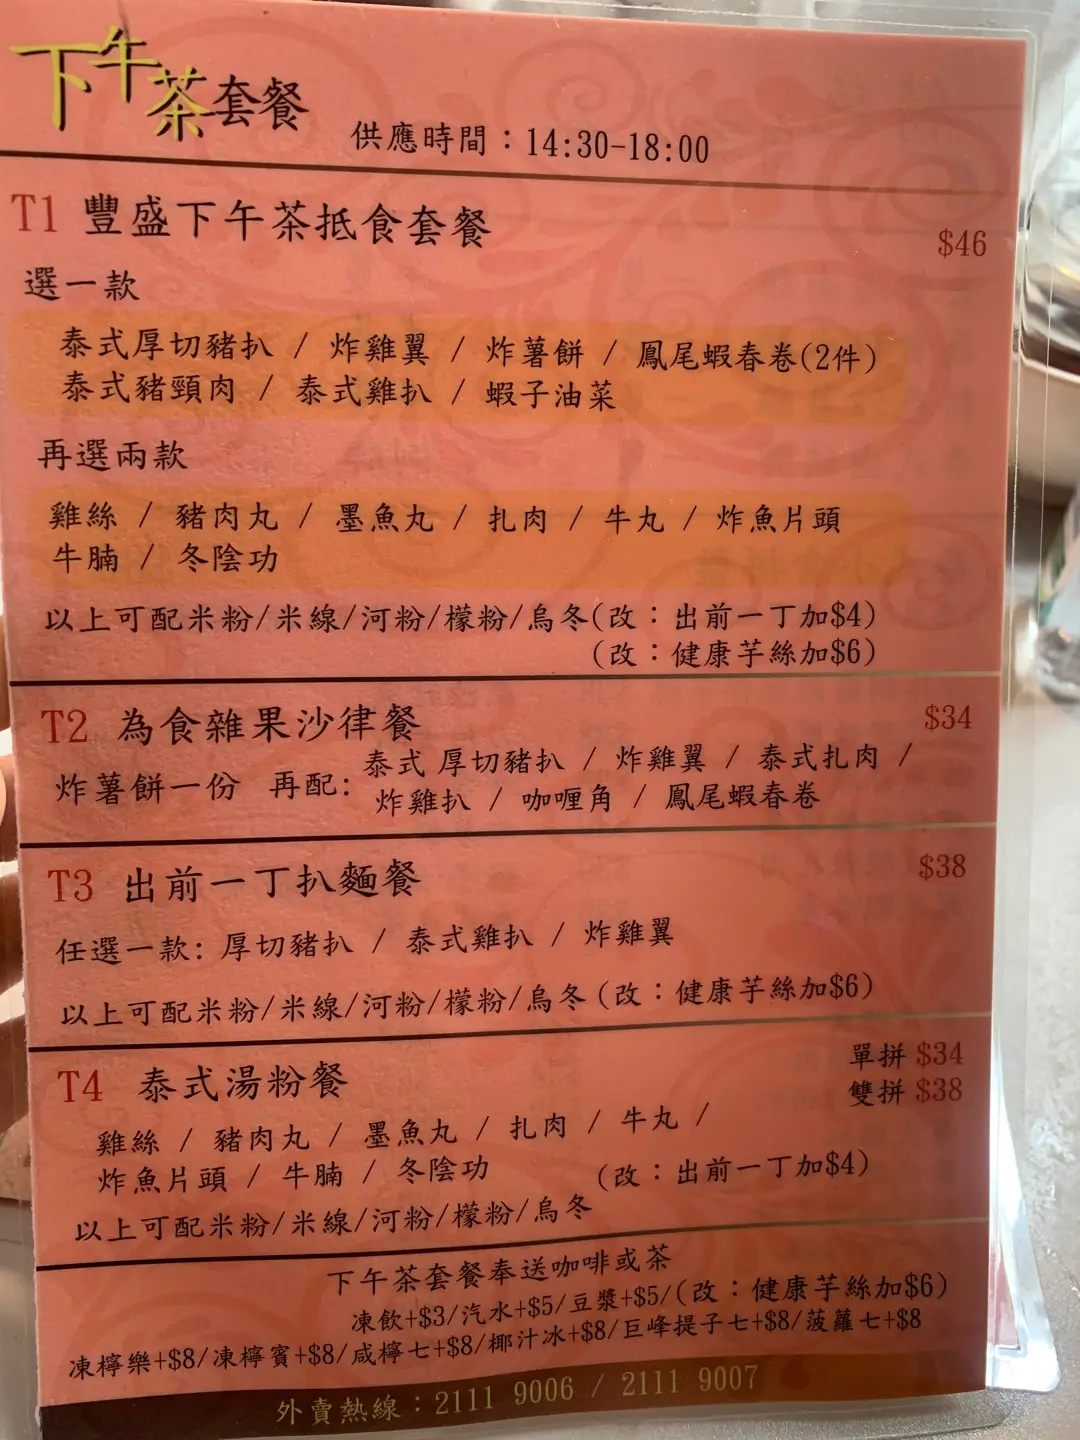 下午茶套餐
供應時間：14:30-18:00
T1 豐盛下午茶抵食套餐 $46
選一款
泰式厚切豬扒 / 炸雞翼 / 炸薯餅 / 鳳尾蝦春卷(2件)
泰式豬頸肉 / 泰式雞扒 / 蝦子油菜
再選兩款
雞絲 / 豬肉丸 / 墨魚丸 / 扎肉 / 牛丸 / 炸魚片頭
牛腩 / 冬陰功
以上可配米粉/米線/河粉/檬粉/烏冬(改：出前一丁加$4)
(改：健康芋絲加$6)
T2 為食雜果沙律餐 $34
炸薯餅一份 再配: 泰式 厚切豬扒 / 炸雞翼 / 泰式扎肉 /
炸雞扒 / 咖喱角 / 鳳尾蝦春卷
T3 出前一丁扒麵餐 $38
任選一款: 厚切豬扒 / 泰式雞扒 / 炸雞翼
以上可配米粉/米線/河粉/檬粉/烏冬 (改：健康芋絲加$6)
T4 泰式湯粉餐 單拼 $34
雙拼 $38
雞絲 / 豬肉丸 / 墨魚丸 / 扎肉 / 牛丸 /
炸魚片頭 / 牛腩 / 冬陰功 (改：出前一丁加$4)
以上可配米粉/米線/河粉/檬粉/烏冬
下午茶套餐奉送咖啡或茶
凍飲+$3/汽水+$5/豆漿+$5/(改：健康芋絲加$6)
凍檸樂+$8/凍檸賓+$8/咸檸七+$8/椰汁冰+$8/巨峰提子七+$8/菠蘿七+$8
外賣熱線：2111 9006 / 2111 9007